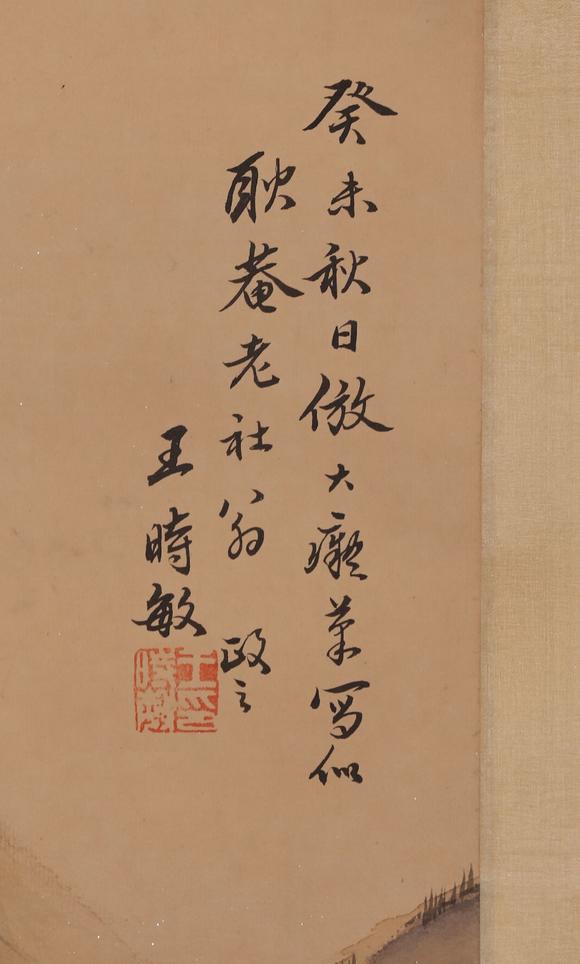 癸未秋日倣大癡筆寫似
耿菴老社翁 政之
王時敏
王印時敏